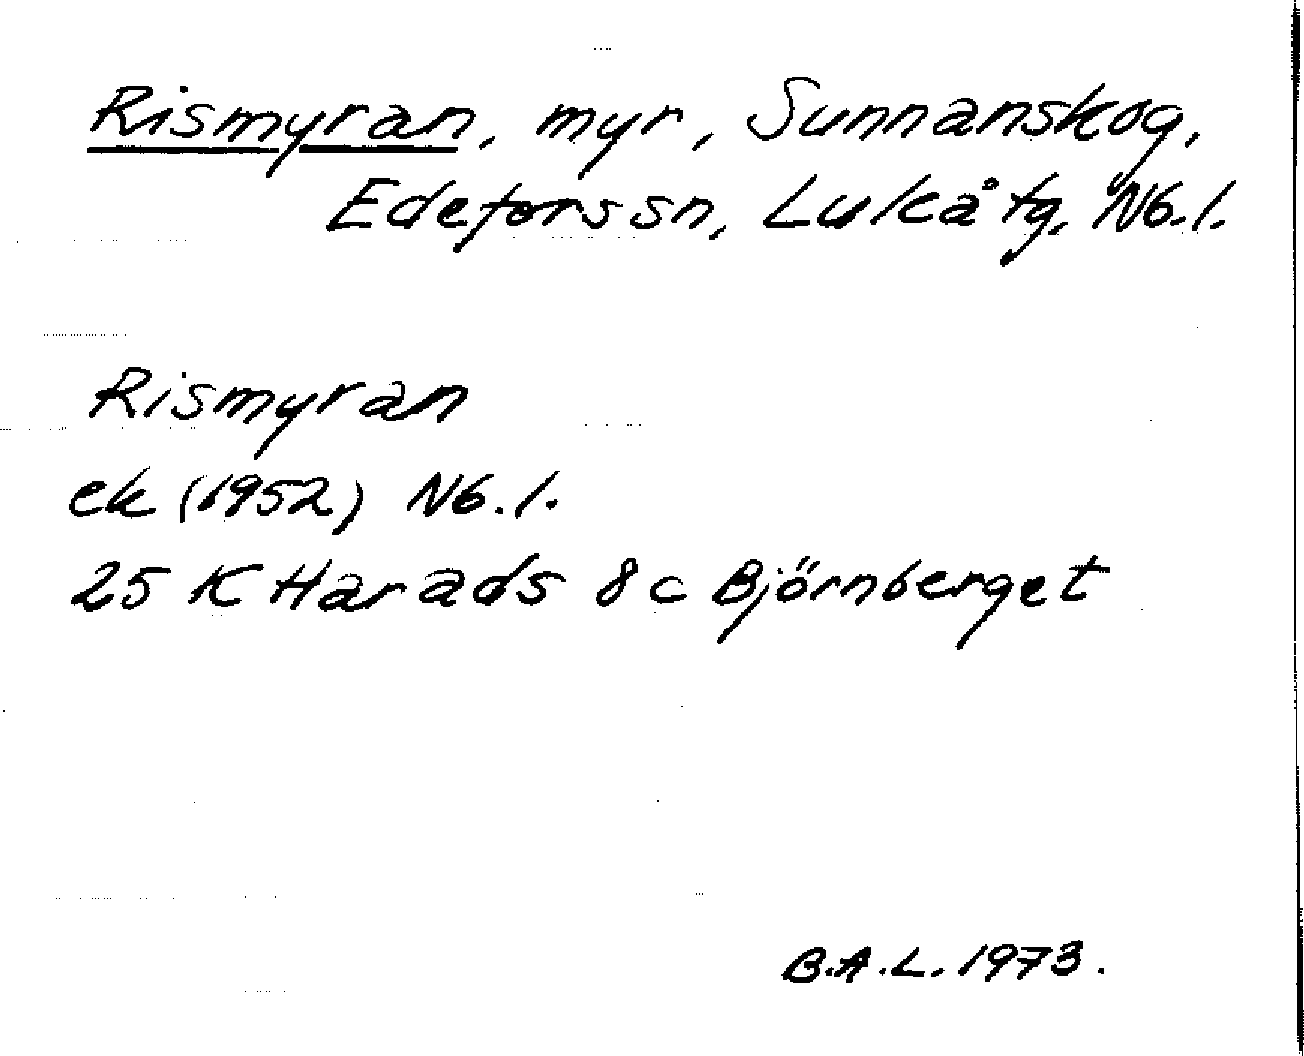 Rismyran, myr, Sunnanskog,
Edeforssn, Lukåtg, Nb. l.
Rismyran
ek (1952) Nb. l.
25 K Harads 8 c Björnberget
B.A.L. 1973.